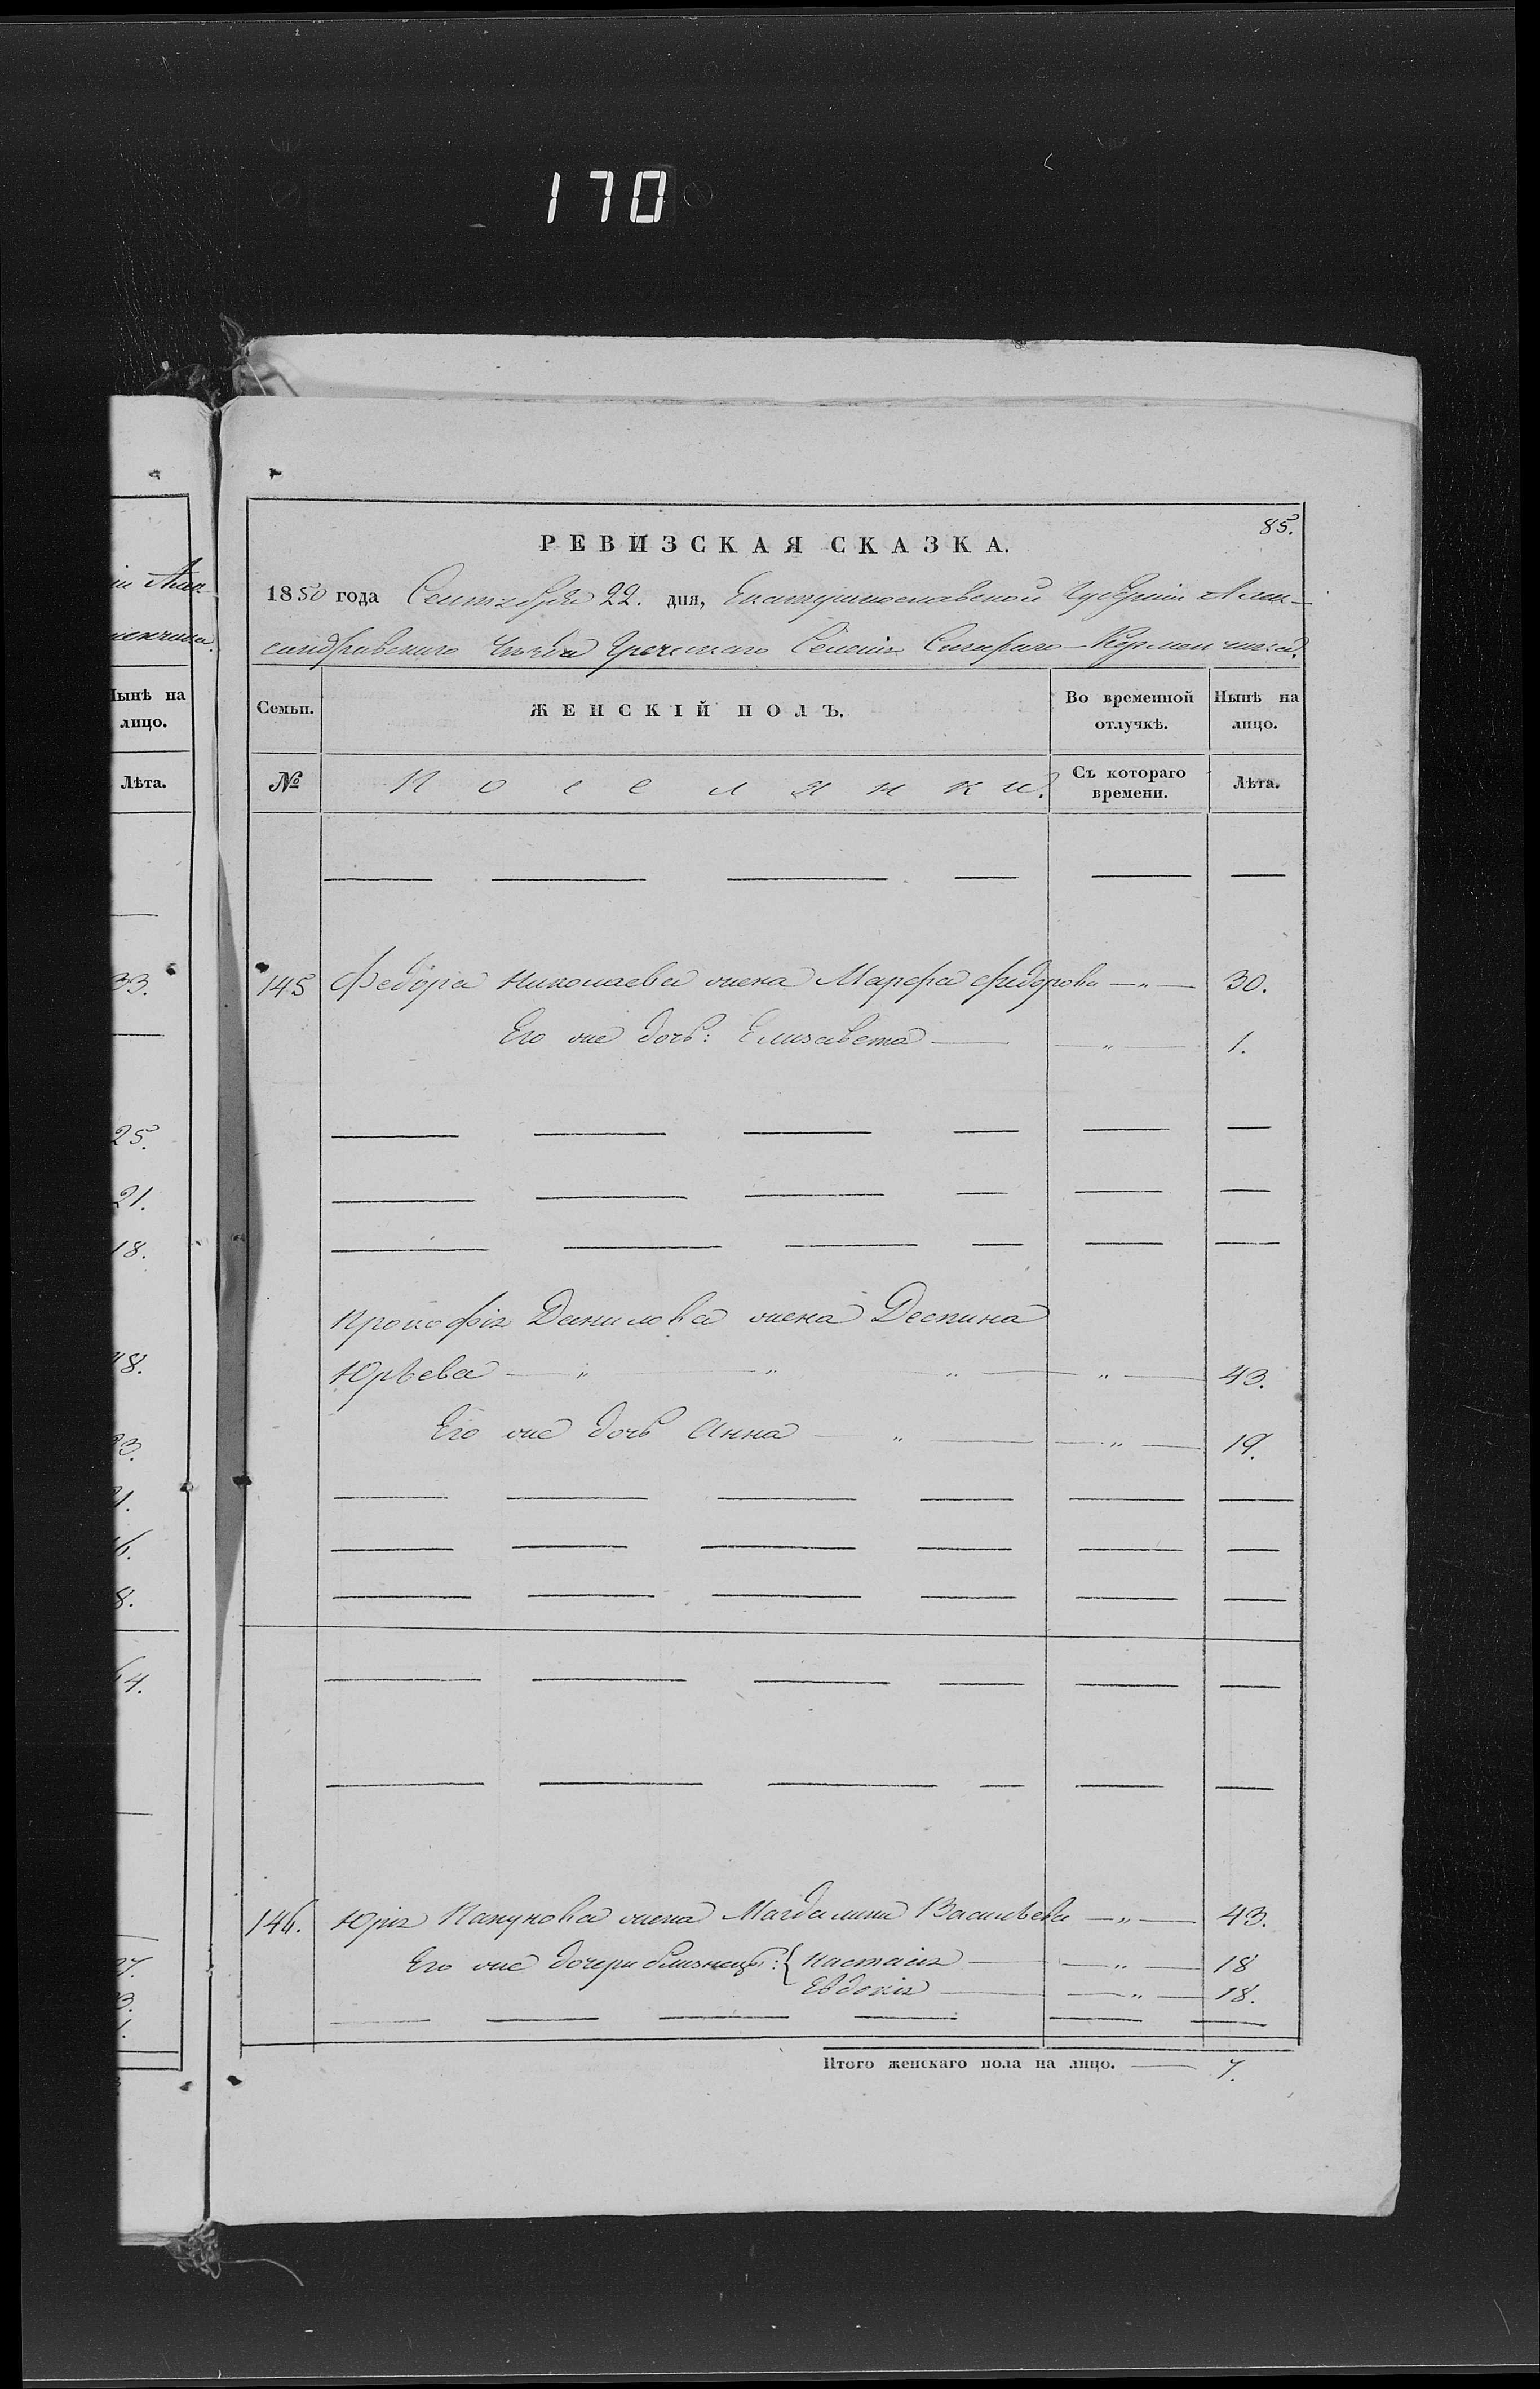 170
85.
РЕВИЗСКАЯ СКАЗКА.
1850 года Сентября 22. дня, Екатеринославской Губерніи Алек-
сандровскаго Уѣзда Греческаго Селенія Стараго-Керменчика.
Семьи. ЖЕНСКІЙ ПОЛЪ. Во временной отлучкѣ. Нынѣ на лицо.
№ Поселянки. Съ котораго времени. Лѣта.
145 Федора Николаева жена Марфа Федорова — „ — 30.
Его же дочь: Елизавета — „ — 1.
Прокофія Данилова жена Деспина
Юрьева — „ „ „ — „ — 43.
Его же дочь Анна — „ — „ — 19.
146. Юрія Папунова жена Магдалина Васильева — „ — 43.
Его же дочери близнецы: { Настасія — „ — 18
Евдокія — „ — 18.
Итого женскаго пола на лицо. — 7.
Нынѣ на
лицо.
Лѣта.
33.
25.
21.
18.